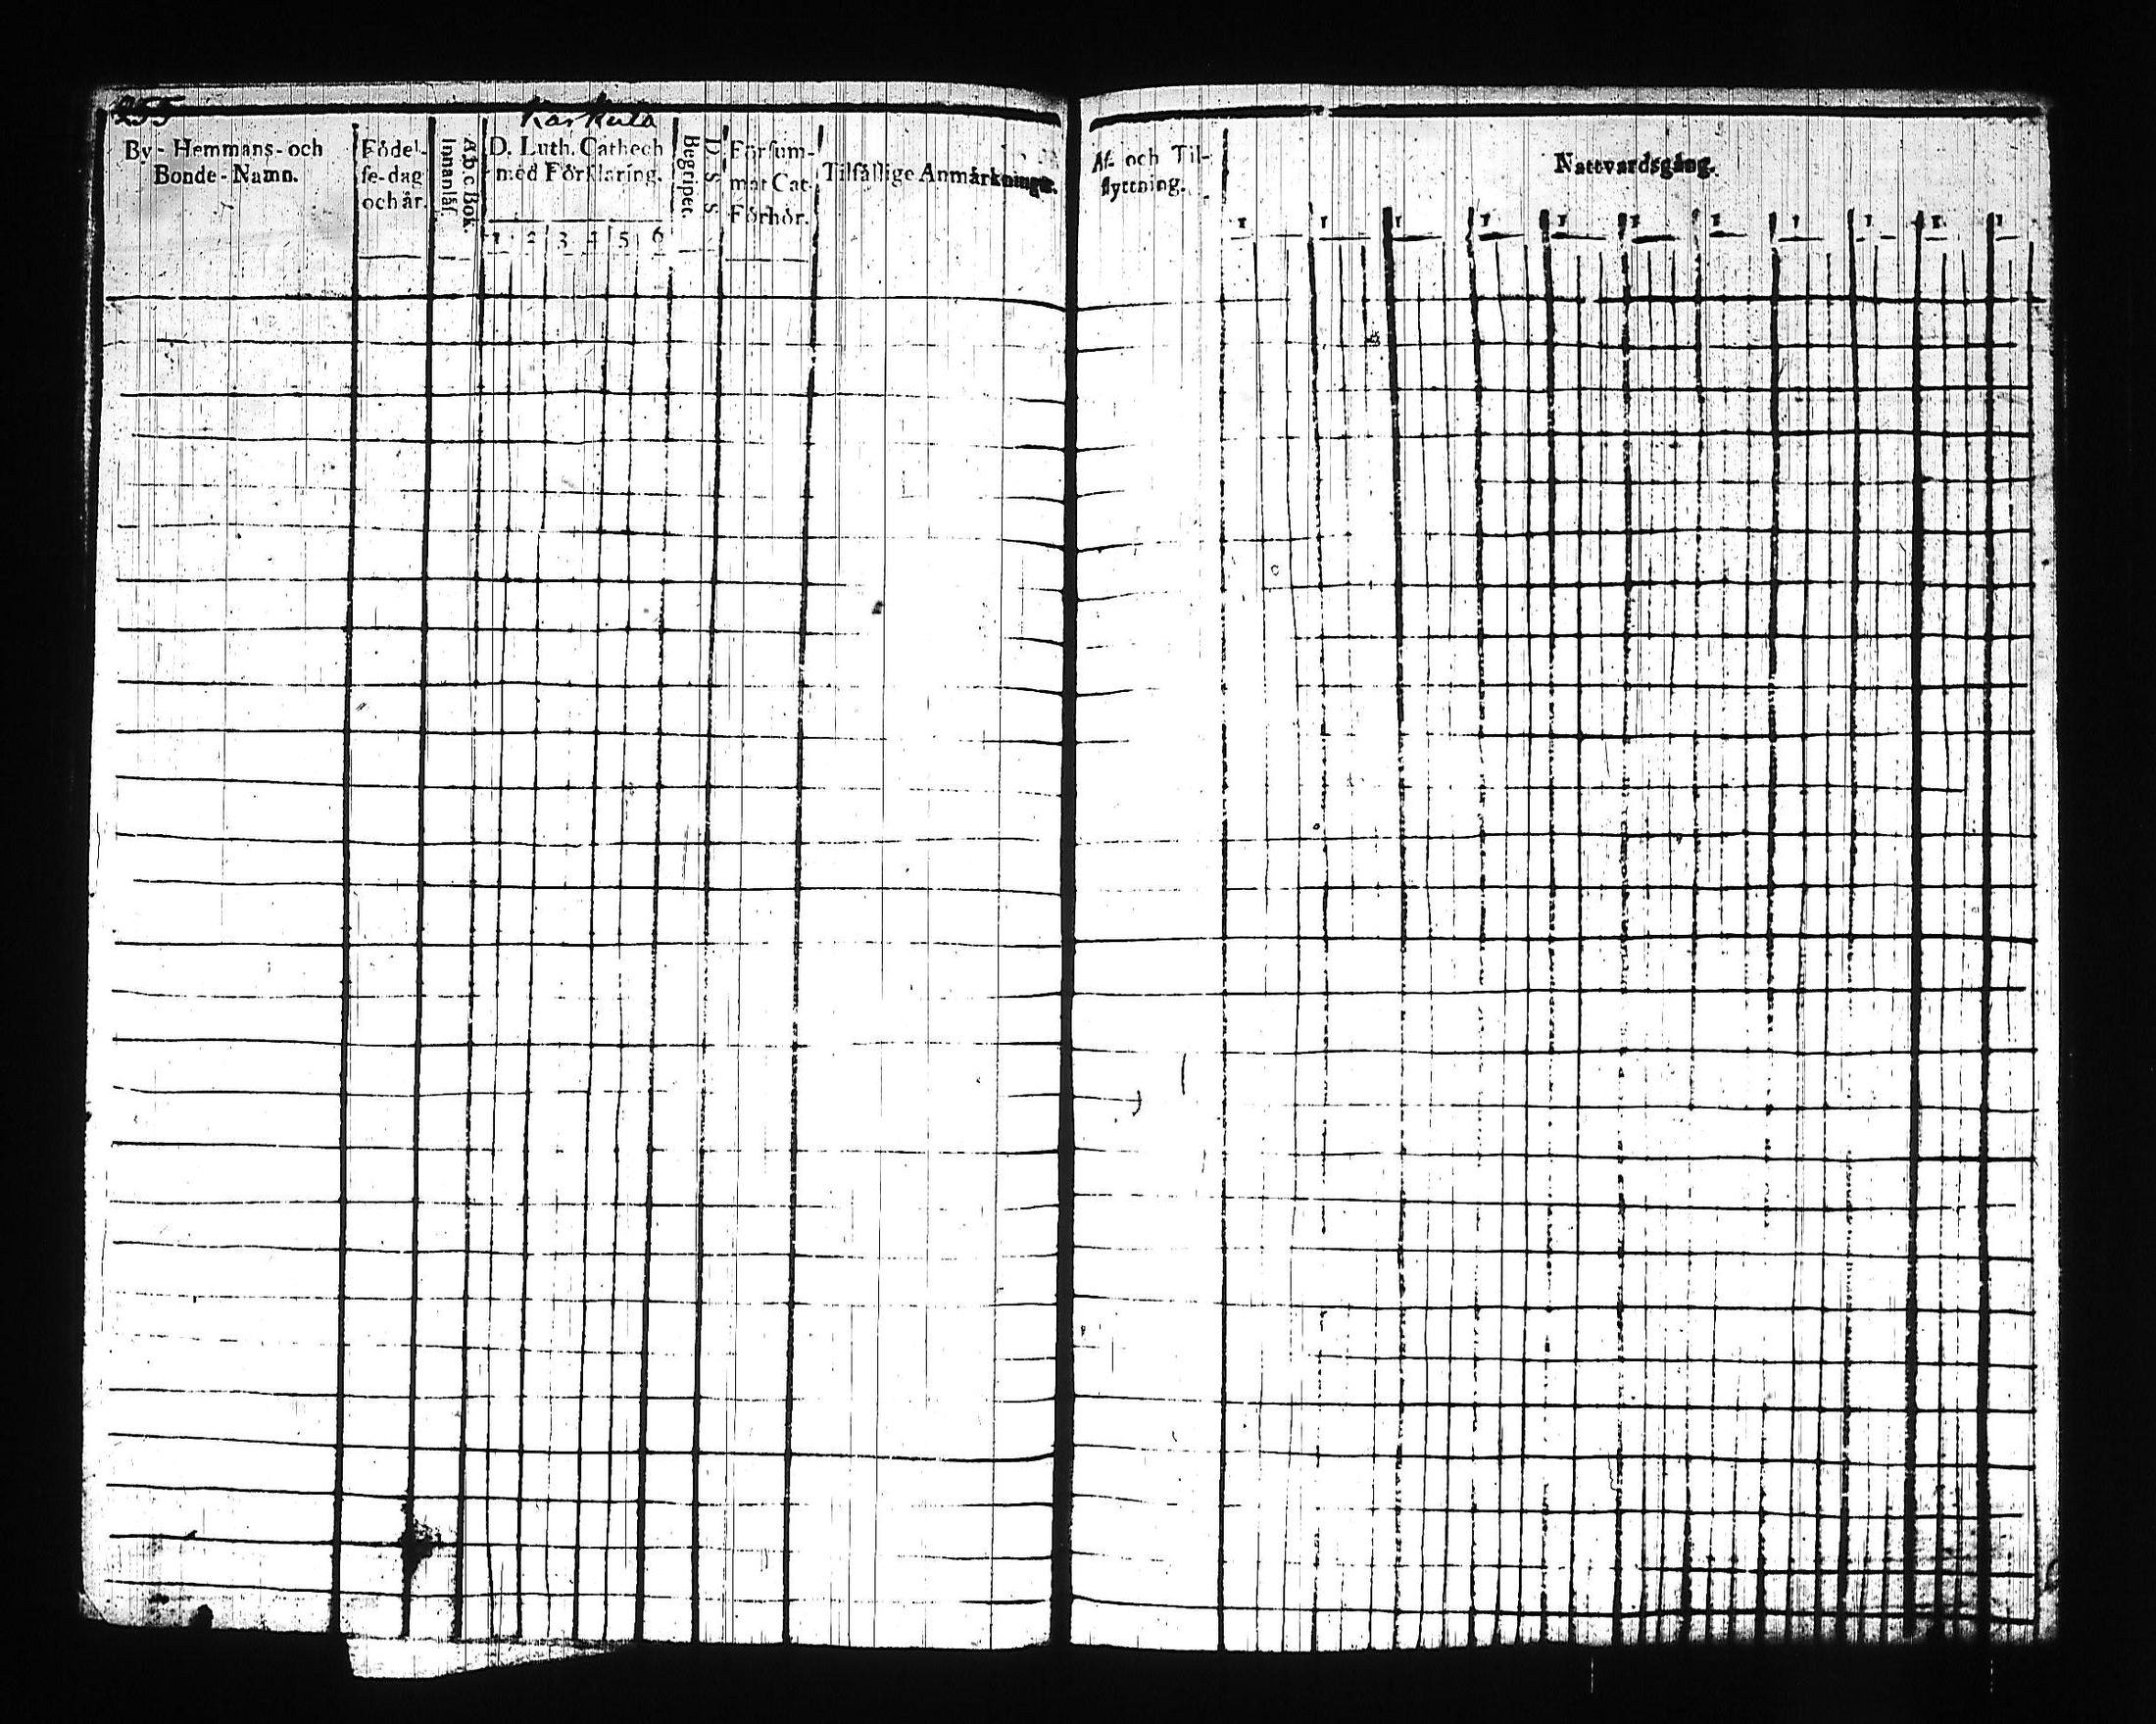 255
Karkula
By- Hemmans- och
Bonde-Namn.
Födel-
se-dag
och år.
A.b.c.Bok.
Innanläs.
D. Luth. Cathech
med Förklaring.
1 2 3 4 5 6
Begriper.
D. S. S.
Försum-
mat Cat.
Förhör.
Tilfällige Anmärkningar.
Af- och Til-
flyttning.
Nattvardsgång.
1 1 1 1 1 1 1 1 1 1 1